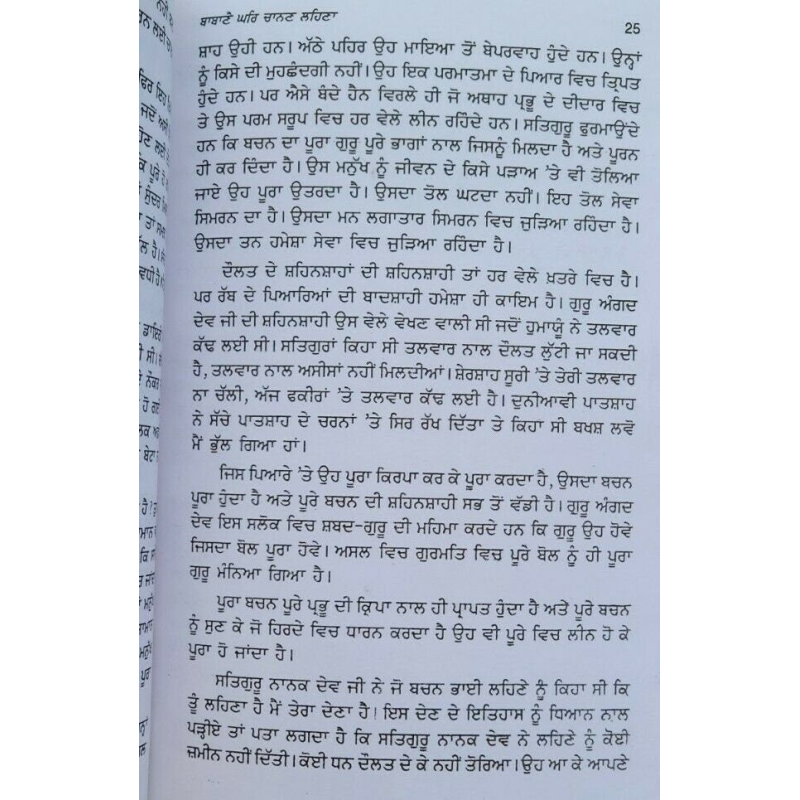 ਬਾਬਾਣੇ ਘਰਿ ਚਾਨਣ ਲਹਿਣਾ
25
ਸ਼ਾਹ ਉਹੀ ਹਨ। ਅੱਠੇ ਪਹਿਰ ਉਹ ਮਾਇਆ ਤੋਂ ਬੇਪਰਵਾਹ ਹੁੰਦੇ ਹਨ। ਉਨ੍ਹਾਂ
ਨੂੰ ਕਿਸੇ ਦੀ ਮੁਹਛੰਦਗੀ ਨਹੀਂ। ਉਹ ਇਕ ਪਰਮਾਤਮਾ ਦੇ ਪਿਆਰ ਵਿਚ ਤ੍ਰਿਪਤ
ਹੁੰਦੇ ਹਨ। ਪਰ ਐਸੇ ਬੰਦੇ ਹੈਨ ਵਿਰਲੇ ਹੀ ਜੋ ਅਥਾਹ ਪ੍ਰਭੂ ਦੇ ਦੀਦਾਰ ਵਿਚ
ਤੇ ਉਸ ਪਰਮ ਸਰੂਪ ਵਿਚ ਹਰ ਵੇਲੇ ਲੀਨ ਰਹਿੰਦੇ ਹਨ। ਸਤਿਗੁਰੂ ਫੁਰਮਾਉਂਦੇ
ਹਨ ਕਿ ਬਚਨ ਦਾ ਪੂਰਾ ਗੁਰੂ ਪੂਰੇ ਭਾਗਾਂ ਨਾਲ ਜਿਸਨੂੰ ਮਿਲਦਾ ਹੈ ਅਤੇ ਪੂਰਨ
ਹੀ ਕਰ ਦਿੰਦਾ ਹੈ। ਉਸ ਮਨੁੱਖ ਨੂੰ ਜੀਵਨ ਦੇ ਕਿਸੇ ਪੜਾਅ 'ਤੇ ਵੀ ਤੋਲਿਆ
ਜਾਏ ਉਹ ਪੂਰਾ ਉਤਰਦਾ ਹੈ। ਉਸਦਾ ਤੋਲ ਘਟਦਾ ਨਹੀਂ। ਇਹ ਤੋਲ ਸੇਵਾ
ਸਿਮਰਨ ਦਾ ਹੈ। ਉਸਦਾ ਮਨ ਲਗਾਤਾਰ ਸਿਮਰਨ ਵਿਚ ਜੁੜਿਆ ਰਹਿੰਦਾ ਹੈ।
ਉਸਦਾ ਤਨ ਹਮੇਸ਼ਾ ਸੇਵਾ ਵਿਚ ਜੁੜਿਆ ਰਹਿੰਦਾ ਹੈ।
ਦੌਲਤ ਦੇ ਸ਼ਹਿਨਸ਼ਾਹਾਂ ਦੀ ਸ਼ਹਿਨਸ਼ਾਹੀ ਤਾਂ ਹਰ ਵੇਲੇ ਖ਼ਤਰੇ ਵਿਚ ਹੈ।
ਪਰ ਰੱਬ ਦੇ ਪਿਆਰਿਆਂ ਦੀ ਬਾਦਸ਼ਾਹੀ ਹਮੇਸ਼ਾ ਹੀ ਕਾਇਮ ਹੈ। ਗੁਰੂ ਅੰਗਦ
ਦੇਵ ਜੀ ਦੀ ਸ਼ਹਿਨਸ਼ਾਹੀ ਉਸ ਵੇਲੇ ਵੇਖਣ ਵਾਲੀ ਸੀ ਜਦੋਂ ਹੁਮਾਯੂੰ ਨੇ ਤਲਵਾਰ
ਕੱਢ ਲਈ ਸੀ। ਸਤਿਗੁਰਾਂ ਕਿਹਾ ਸੀ ਤਲਵਾਰ ਨਾਲ ਦੌਲਤ ਲੁੱਟੀ ਜਾ ਸਕਦੀ
ਹੈ, ਤਲਵਾਰ ਨਾਲ ਅਸੀਸਾਂ ਨਹੀਂ ਮਿਲਦੀਆਂ। ਸ਼ੇਰਸ਼ਾਹ ਸੂਰੀ 'ਤੇ ਤੇਰੀ ਤਲਵਾਰ
ਨਾ ਚੱਲੀ, ਅੱਜ ਫਕੀਰਾਂ 'ਤੇ ਤਲਵਾਰ ਕੱਢ ਲਈ ਹੈ। ਦੁਨੀਆਵੀ ਪਾਤਸ਼ਾਹ
ਨੇ ਸੱਚੇ ਪਾਤਸ਼ਾਹ ਦੇ ਚਰਨਾਂ 'ਤੇ ਸਿਰ ਰੱਖ ਦਿੱਤਾ ਤੇ ਕਿਹਾਂ ਸੀ ਬਖਸ਼ ਲਵੋ
ਮੈਂ ਭੁੱਲ ਗਿਆ ਹਾਂ।
ਜਿਸ ਪਿਆਰੇ 'ਤੇ ਉਹ ਪੂਰਾ ਕਿਰਪਾ ਕਰ ਕੇ ਪੂਰਾ ਕਰਦਾ ਹੈ, ਉਸਦਾ ਬਚਨ
ਪੂਰਾ ਹੁੰਦਾ ਹੈ ਅਤੇ ਪੂਰੇ ਬਚਨ ਦੀ ਸ਼ਹਿਨਸ਼ਾਹੀ ਸਭ ਤੋਂ ਵੱਡੀ ਹੈ। ਗੁਰੂ ਅੰਗਦ
ਦੇਵ ਇਸ ਸਲੋਕ ਵਿਚ ਸ਼ਬਦ-ਗੁਰੂ ਦੀ ਮਹਿਮਾ ਕਰਦੇ ਹਨ ਕਿ ਗੁਰੂ ਉਹ ਹੋਵੇ
ਜਿਸਦਾ ਬੋਲ ਪੂਰਾ ਹੋਵੇ। ਅਸਲ ਵਿਚ ਗੁਰਮਤਿ ਵਿਚ ਪੂਰੇ ਬੋਲ ਨੂੰ ਹੀ ਪੂਰਾ
ਗੁਰੂ ਮੰਨਿਆ ਗਿਆ ਹੈ।
ਪੂਰਾ ਬਚਨ ਪੂਰੇ ਪ੍ਰਭੂ ਦੀ ਕ੍ਰਿਪਾ ਨਾਲ ਹੀ ਪ੍ਰਾਪਤ ਹੁੰਦਾ ਹੈ ਅਤੇ ਪੂਰੇ ਬਚਨ
ਨੂੰ ਸੁਣ ਕੇ ਜੋ ਹਿਰਦੇ ਵਿਚ ਧਾਰਨ ਕਰਦਾ ਹੈ ਉਹ ਵੀ ਪੂਰੇ ਵਿਚ ਲੀਨ ਹੋ ਕੇ
ਪੂਰਾ ਹੋ ਜਾਂਦਾ ਹੈ।
ਸਤਿਗੁਰੂ ਨਾਨਕ ਦੇਵ ਜੀ ਨੇ ਜੋ ਬਚਨ ਭਾਈ ਲਹਿਣੇ ਨੂੰ ਕਿਹਾ ਸੀ ਕਿ
ਤੂੰ ਲਹਿਣਾ ਹੈ ਮੈਂ ਤੇਰਾ ਦੇਣਾ ਹੈ! ਇਸ ਦੇਣ ਦੇ ਇਤਿਹਾਸ ਨੂੰ ਧਿਆਨ ਨਾਲ
ਪੜ੍ਹੀਏ ਤਾਂ ਪਤਾ ਲਗਦਾ ਹੈ ਕਿ ਸਤਿਗੁਰੂ ਨਾਨਕ ਦੇਵ ਨੇ ਲਹਿਣੇ ਨੂੰ ਕੋਈ
ਜ਼ਮੀਨ ਨਹੀਂ ਦਿੱਤੀ। ਕੋਈ ਧਨ ਦੌਲਤ ਦੇ ਕੇ ਨਹੀਂ ਤੋਰਿਆ। ਉਹ ਆ ਕੇ ਆਪਣੇ